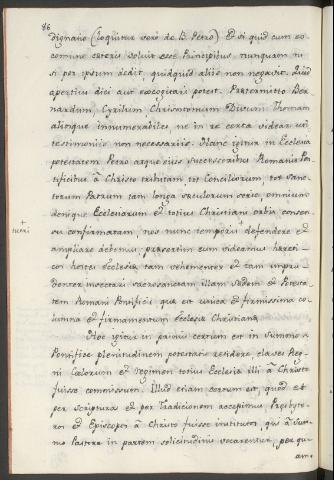 86
dignatio (loquitur vero de B. Petro) Et si quid cum eo
comune ceteris voluit esse Principibus nunquam ni
si per ipsum dedit, quidquid aliis non negavit. Quid
apertius dici aut excogitari potest. Praetermitto Ber
nardum, Cyrilum Chrisostomum Divum Thomam
aliosque innumerabiles, ne in re certa videar uti
testimoniis non necessariis. Hanc igitur in Ecclesia
potestatem Petro atque eius successoribus Romanis Pon
tificibus à Christo tributam, tot Conciliorum tot Sanc
torum Patrum tam longa saeculorum serie, omnium
denique Ecclesiarum et totius Christiani orbis consen
su confirmatam, nos nunc temporis + defendere et
+
tueri
ampliare debemus, praesertim cum videamus haereti
cos hostes Ecclesiae tam vehementer et tam impru
denter insectari sacrosanctam illam Sedem et Potesta
tem Romani Pontificis quae est unica et firmissima co
lumna et firmamentum Ecclesiae Christianae
Hoc igitur in primis certum est in Summo
Pontifice plenitudinem potestatis residere, claves Reg
ni Coelorum et regimen totius Ecclesiae illi à Christo
fuisse commissum. Illud etiam certum est, quod et
per Scripturas et per Traditionem accepimus Presbyte
ros et Episcopos à Christo fuisse institutos, qui à Sum
mo Pastore in partem solicitudinis vocarentur, per qu
am